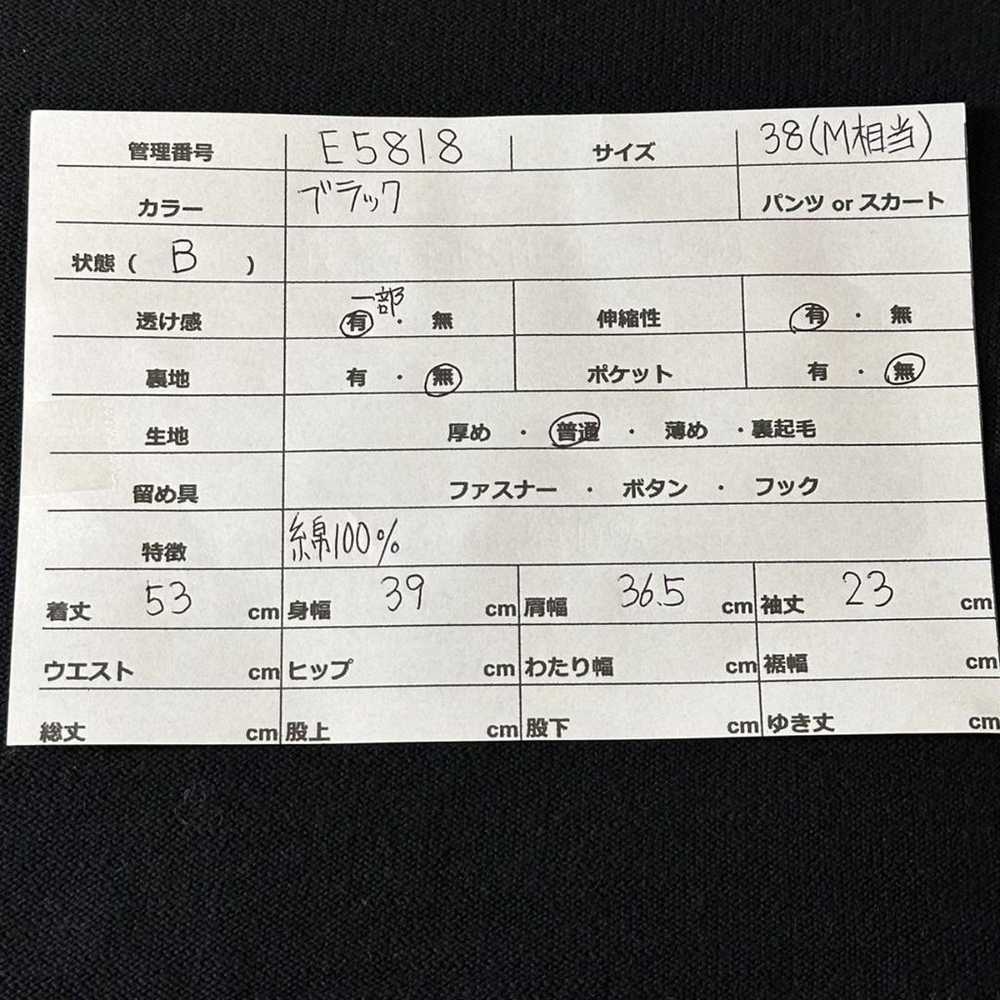 管理番号 E5818 サイズ 38(M相当)
カラー ブラック パンツ or スカート
状態 ( B )
一部
透け感 有 ・ 無 伸縮性 有 ・ 無
裏地 有 ・ 無 ポケット 有 ・ 無
生地 厚め ・ 普通 ・ 薄め ・裏起毛
留め具 ファスナー ・ ボタン ・ フック
特徴 綿100%
着丈 53 cm 身幅 39 cm 肩幅 36.5 cm 袖丈 23 cm
ウエスト cm ヒップ cm わたり幅 cm 裾幅 cm
総丈 cm 股上 cm 股下 cm ゆき丈 cm